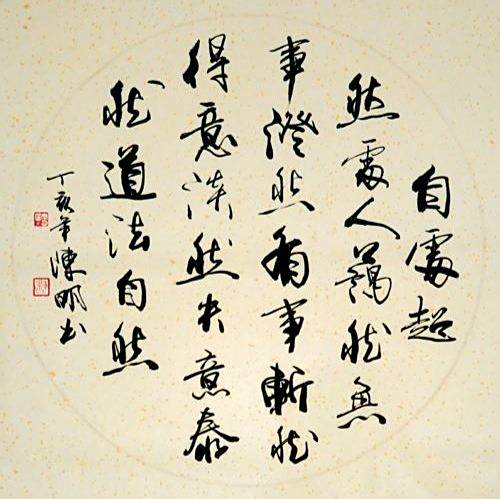 自處超
然處人藹然無
事澄然有事斬然
得意淡然失意泰
然道法自然
丁亥年陳明书